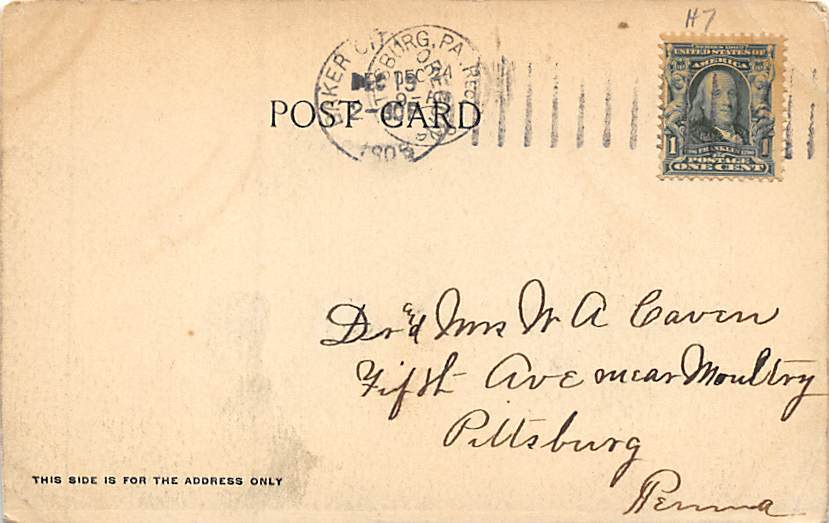 H7
SERIES 1902
UNITED STATES OF
AMERICA
PARKER CITY
PITTSBURG, PA. REC'D.
DEC 24
DEC 13
9-A
1905
POST CARD
1 FRANKLIN 1
POSTAGE
ONE CENT
Dr & Mrs W A Caven
Fifth Ave near Moultry
Pittsburg
Penna
THIS SIDE IS FOR THE ADDRESS ONLY